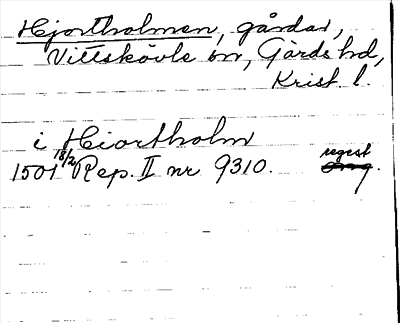 Hjortholmen, gårdar,
Vittskövle sn, Gärds hd,
Krist. l.
i Hiortholm
1501 18/2 Rep. II nr 9310. regest.